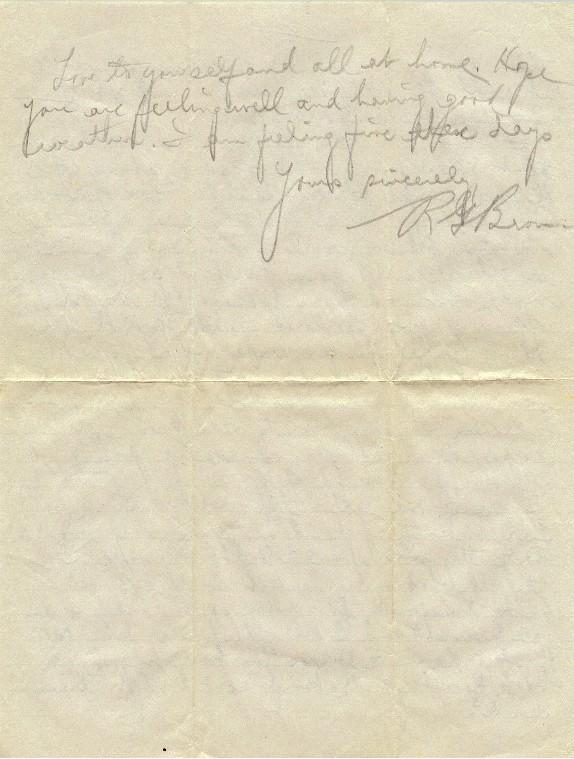 Love to yourself and all at home. Hope
you are feeling well and having good
weather. I am feeling fine these days
Yours sincerely
R Brown